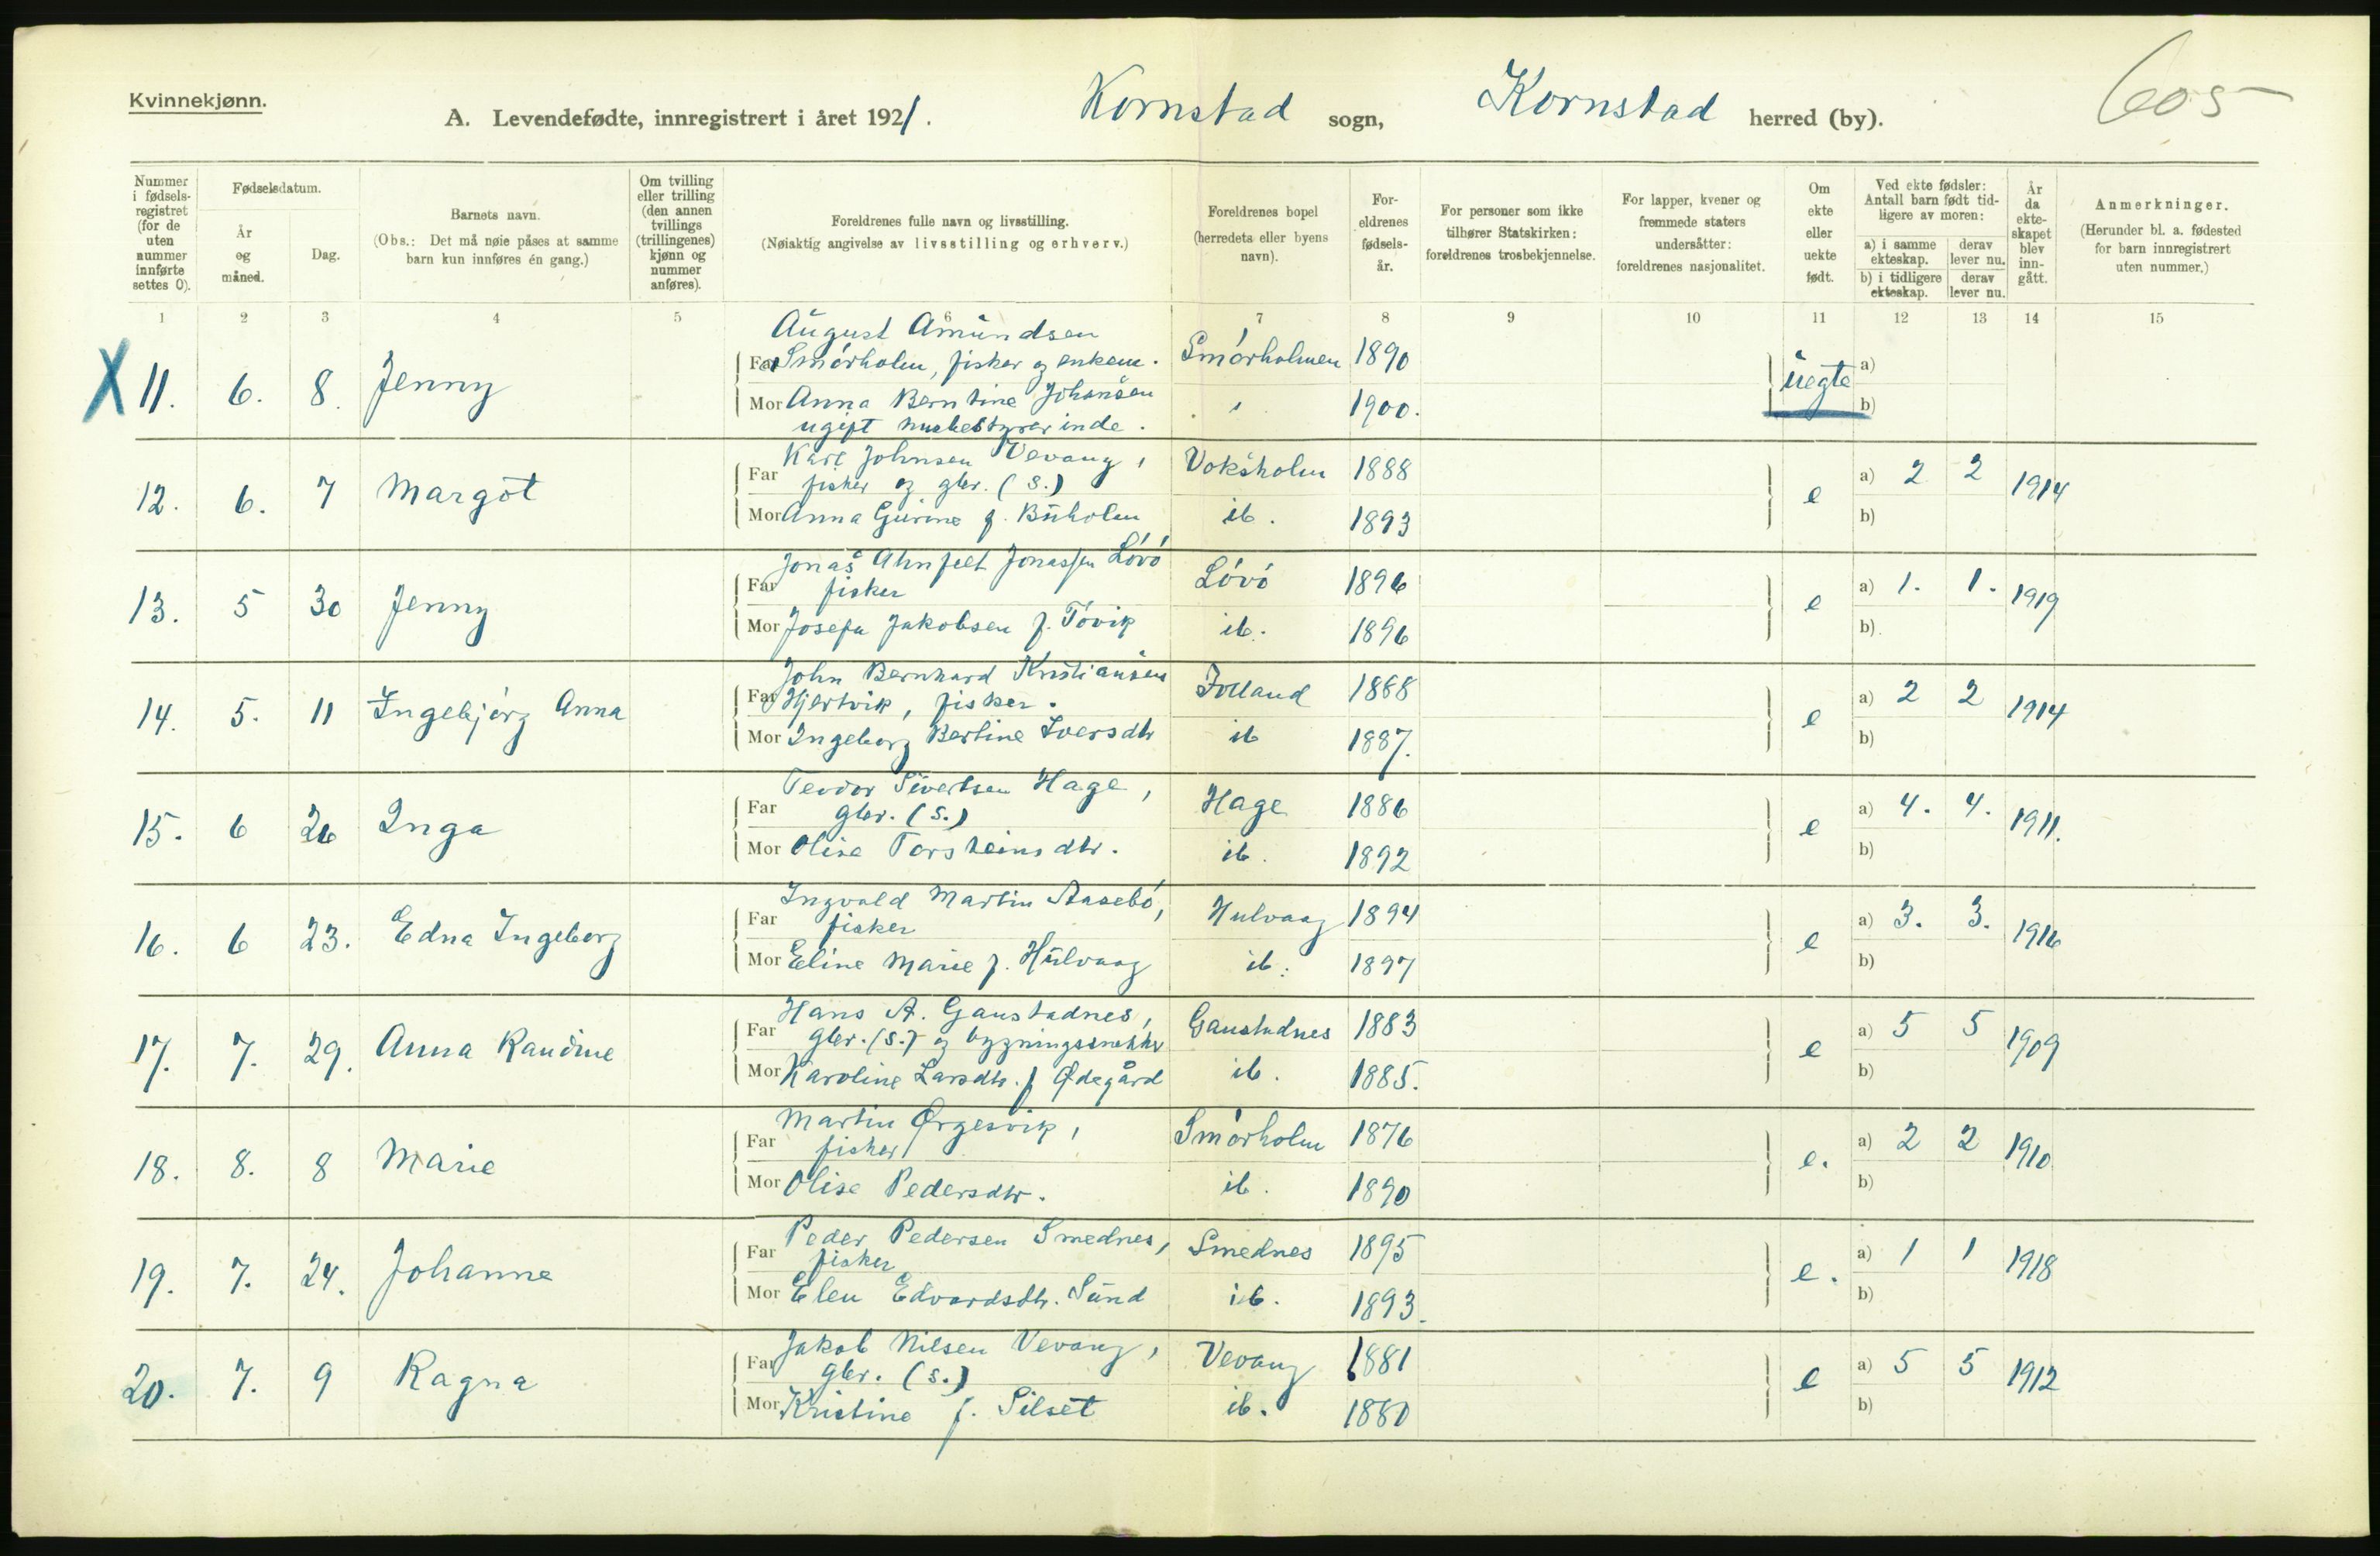 Kvinnekjønn.
A. Levendefødte, innregistrert i året 1921. Kornstad sogn, Kornstad herred (by). 605
Nummer i fødselsregistret (for de uten nummer innførte settes 0).
Fødselsdatum.
År og måned.
Dag.
Barnets navn.
(Obs.: Det må nøie påses at samme barn kun innføres én gang.)
Om tvilling eller trilling (den annen tvillings (trillingenes) kjønn og nummer anføres).
Foreldrenes fulle navn og livsstilling.
(Nøiaktig angivelse av livsstilling og erhverv.)
Foreldrenes bopel (herredets eller byens navn).
Foreldrenes fødselsår.
For personer som ikke tilhører Statskirken: foreldrenes trosbekjennelse.
For lapper, kvener og fremmede staters undersåtter: foreldrenes nasjonalitet.
Om ekte eller uekte født.
Ved ekte fødsler: Antall barn født tidligere av moren:
a) i samme ekteskap. derav lever nu.
b) i tidligere ekteskap. derav lever nu.
År da ekteskapet blev inngått.
Anmerkninger.
(Herunder bl. a. fødested for barn innregistrert uten nummer.)
1 2 3 4 5 6 7 8 9 10 11 12 13 14 15
August Amundsen
X 11. 6. 8. Jenny Far Smórholm, fisker og enkem. Smórholmen 1890 uegte a)
Mor Anna Berntine Johansen 1900. b)
ugift husbestyrerinde.
Karl Johnsen Vevang,
12. 6. 7 Margot Far fisker og gbr. (S.) Voksholm 1888 e a) 2 2 1914
Mor Anna Gurine f. Buholm ib. 1893 b)
Jonas Ahnfelt Jonassen Lóvó
13. 5 30 Jenny Far fisker Lóvó 1896 e a) 1. 1. 1919
Mor Josefa Jakobsen f. Tóvik ib. 1896 b)
John Bernhard Kristiansen
14. 5. 11 Ingebjórg Anna Far Hjertvik, fisker. Folland 1888 e a) 2 2 1914
Mor Ingeborg Bertine Iversdtr ib 1887. b)
Teodor Sivertsen Hage,
15. 6 26 Inga Far gbr. (S.) Hage 1886 e a) 4. 4. 1911.
Mor Olise Torsheinsdtr. ib. 1892 b)
Ingvald Martin Aasebó,
16. 6 23. Edna Ingeborg Far fisker Hulvaag 1894 e a) 3. 3. 1916
Mor Eline Marie f. Hulvaag ib. 1897 b)
Hans A. Gaustadnes,
17. 7. 29. Anna Randine Far gbr. (S.) og bygningssnekker Gaustadnes 1883 e a) 5 5 1909
Mor Karoline Larsdtr. f Ødegård ib. 1885. b)
Martin Ørgesvik,
18. 8. 8 Marie Far fisker Smórholm 1876 e. a) 2 2 1910
Mor Olise Pedersdtr. ib. 1890 b)
Peder Pedersen Smednes,
19. 7. 24. Johanne Far fisker Smednes 1895 e. a) 1 1 1918
Mor Elen Edvardsdtr. Sund ib. 1893. b)
Jakob Nilsen Vevang,
20. 7. 9 Ragna Far gbr. (S.) Vevang 1881 e a) 5 5 1912
Mor Kristine f. Silset ib. 1880 b)